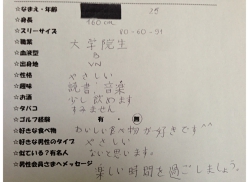 ☆なまえ・年齢 25
☆身長 160cm
☆スリーサイズ 80-60-91
☆職業 大学院生
☆血液型 B
☆出身地 VN
☆性格 やさしい
☆趣味 読書、音楽
☆お酒 少し飲めます
☆タバコ すみません
☆ゴルフ経験 有・無
☆好きな食べ物 おいしい食べ物が好きです^^
☆好きな男性のタイプ やさしい
☆似ている？有名人 ないと思います。
☆男性会員さまへメッセージ 楽しい時間を過ごしましょう。